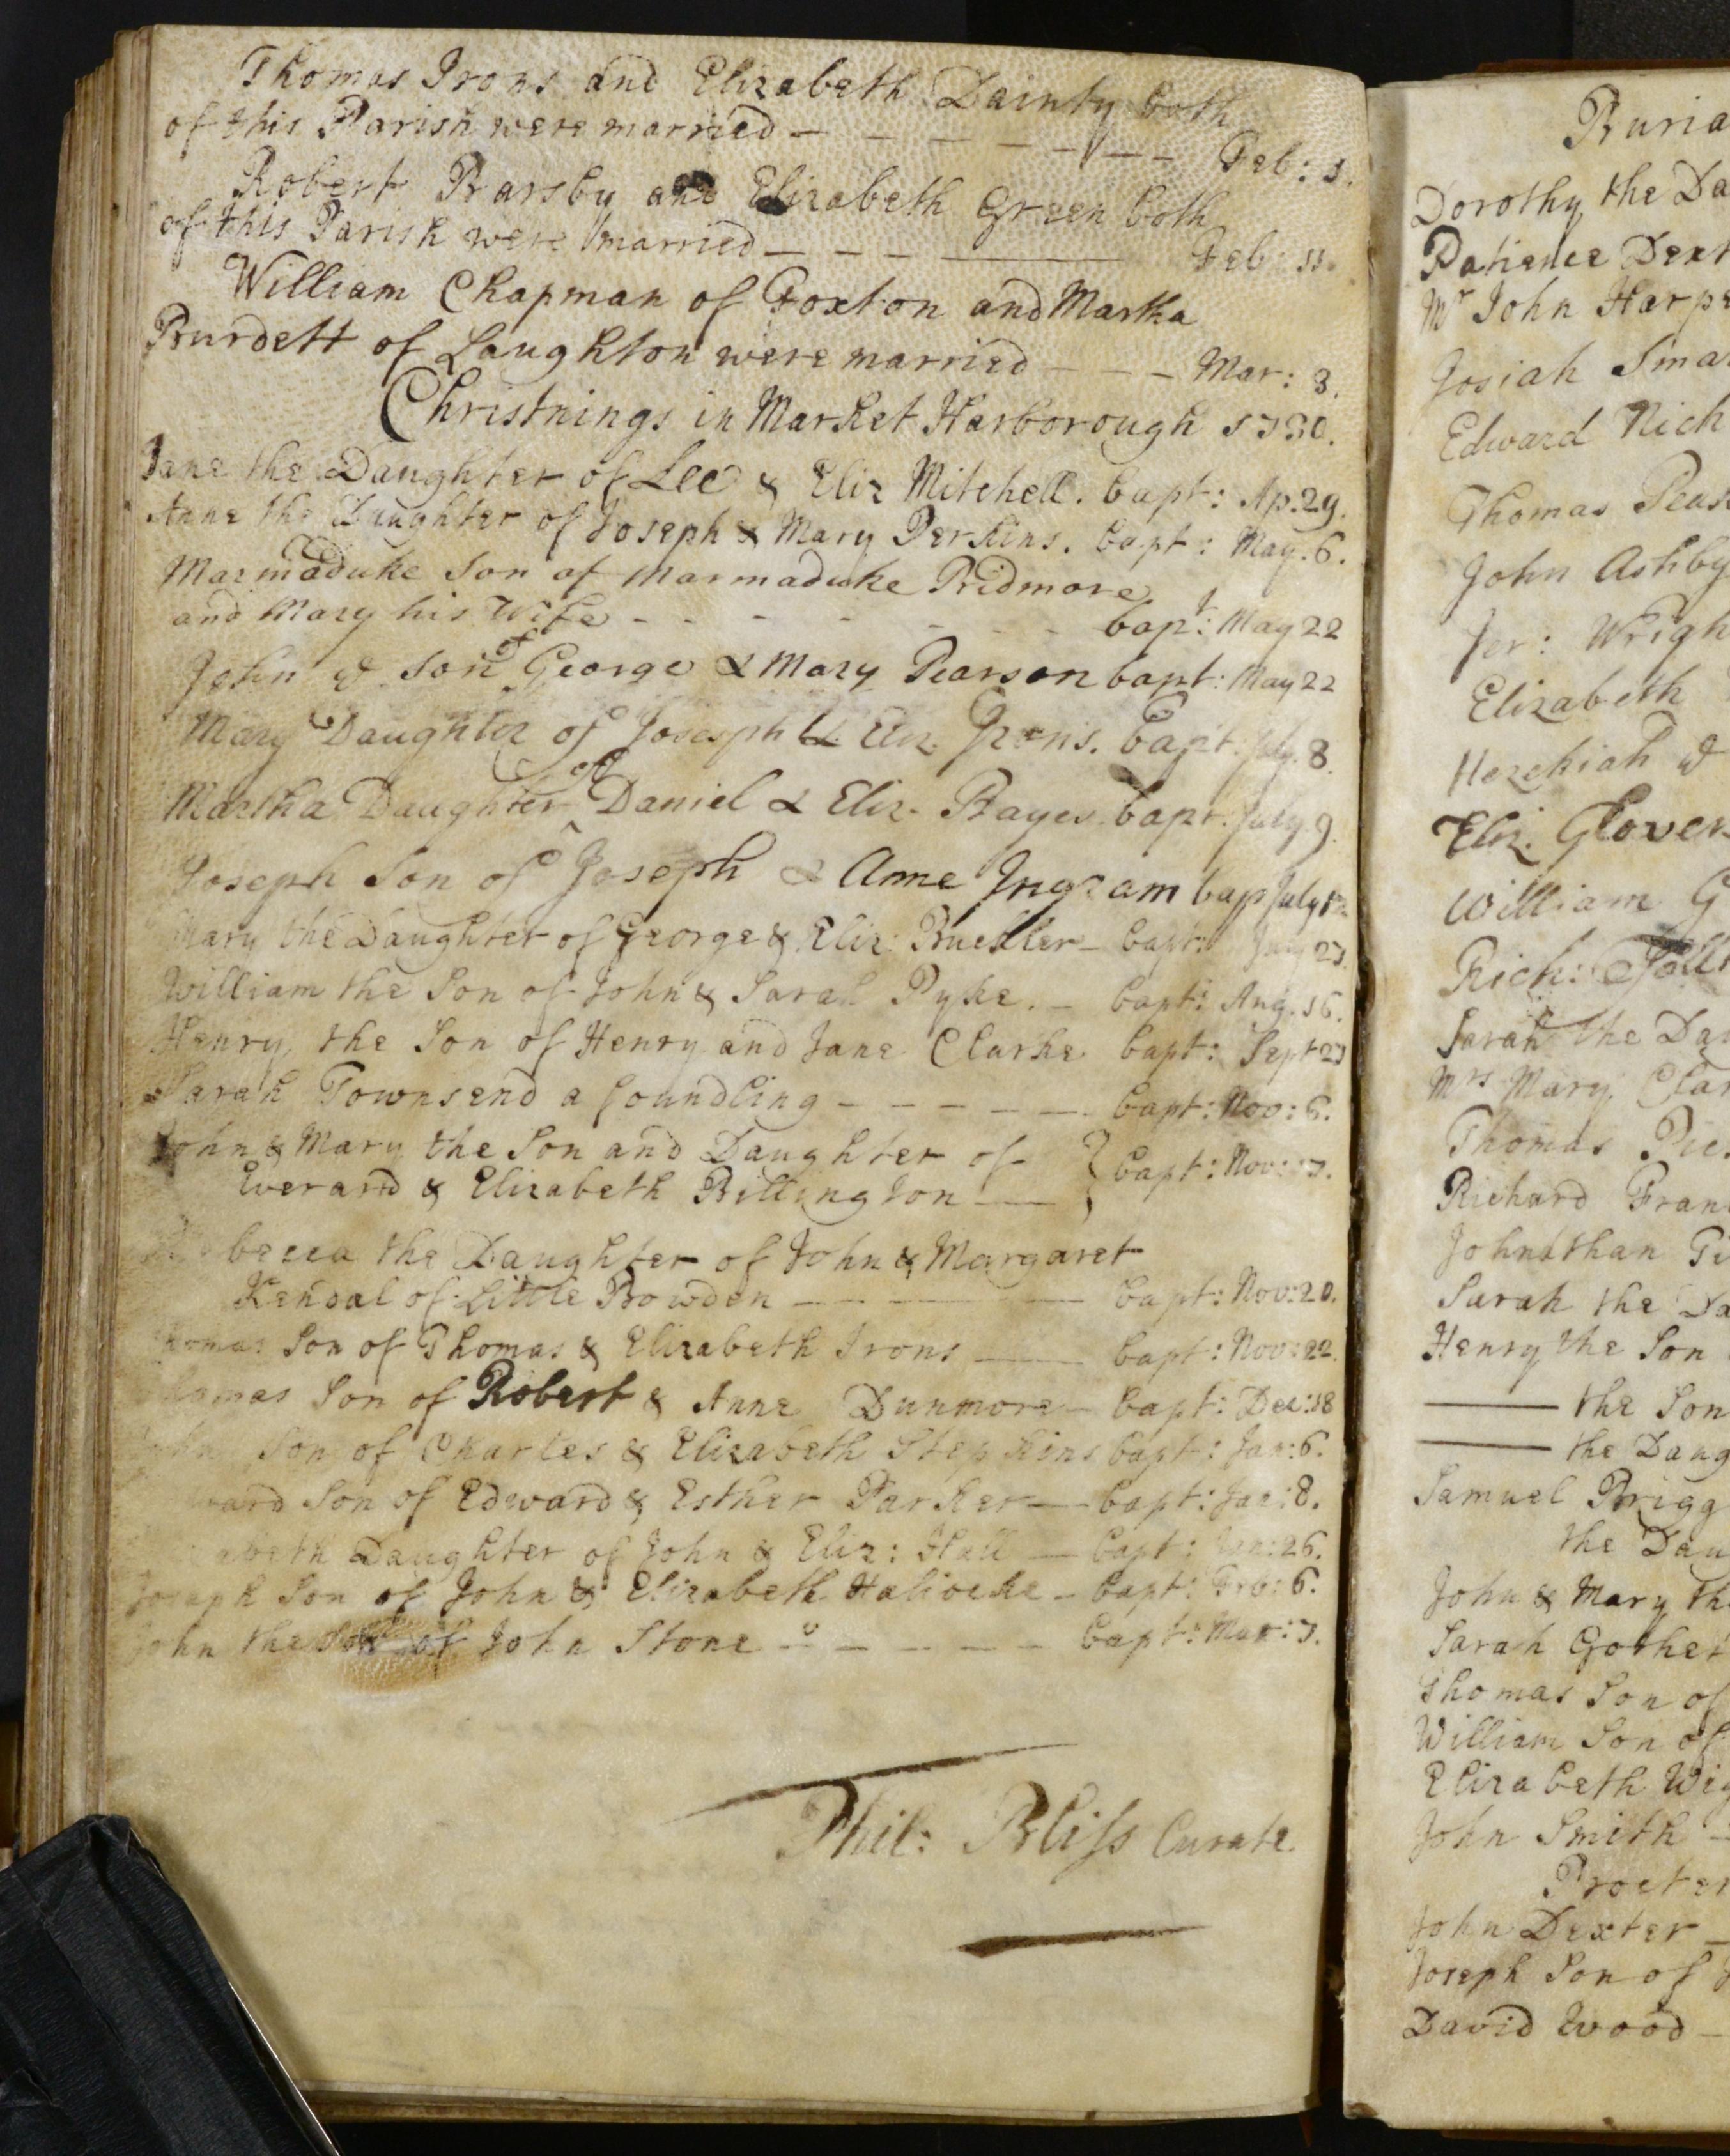 Thomas Irons and Elizabeth Dainty both
of this Parish were married - - - - - - - Feb: 1.
Robert Barsby and Elizabeth Green both
of this Parish were married - - - Feb: 11.
William Chapman of Foxton and Martha
Burdett of Laughton were married - - - Mar: 3.
Christnings in Market Harborough 1730.
Jane the Daughter of Lee & Eliz Mitchell. bapt: Ap. 29.
Anne the Daughter of Joseph & Mary Perkins. bapt: May. 6.
Marmaduke Son of Marmaduke Pridmore
and Mary his Wife - - - - - - - bapt: May 22
John ye Son of George & Mary Pearson bapt: May 22
Mary Daughter of Joseph & Eliz. Irons. bapt. July. 8.
Martha Daughter of Daniel & Eliz. Bayes bapt. July. 9.
Joseph Son of Joseph & Anne Ingram bap July
Mary the Daughter of George & Eliz: - bapt: 27.
William the Son of John & Sarah Pyke. - bapt: Aug. 16.
Henry the Son of Henry and Jane Clarke bapt: Sept 27
Sarah Townsend a foundling - - - - - - bapt: Nov: 6.
John & Mary the Son and Daughter of
Everard & Elizabeth Billington } bapt: Nov: 17.
Rebecca the Daughter of John & Margaret
Kendal of Little Bowden - - - bapt: Nov: 20.
Thomas Son of Thomas & Elizabeth Irons - bapt: Nov: 22.
Thomas Son of Robert & Anne Dunmore - bapt: Dec: 18
John Son of Charles & Elizabeth Stepkins bapt: Jan: 6.
Edward Son of Edward & Esther Parker - bapt: Jan: 8.
Elizabeth Daughter of John & Eliz: Hall - bapt: Jan: 26.
Joseph Son of John & Elizabeth - bapt: Feb: 6.
John the Son of John Stone - - - - - - bapt: Mar: 7.
Phil: Bliſs Curate.
Buria
Dorothy the Da
Patience Dext
Mr John Harpe
Josiah Sma
Edward Nich
Thomas Peas
John Ashby
Jer: Wrigh
Elizabeth
Hezekiah ye
Eliz. Glover
William G
Rich:
Sarah the Da
Mrs Mary Clar
Thomas
Richard Fran
Johnathan
Sarah the Da
Henry the Son
the Son
the Daug
Samuel Brigg
the Dau
John & Mary th
Sarah
Thomas Son of
William Son of
Elizabeth
John Smith -
Procter
John Dexter -
Joseph Son of
David Wood -